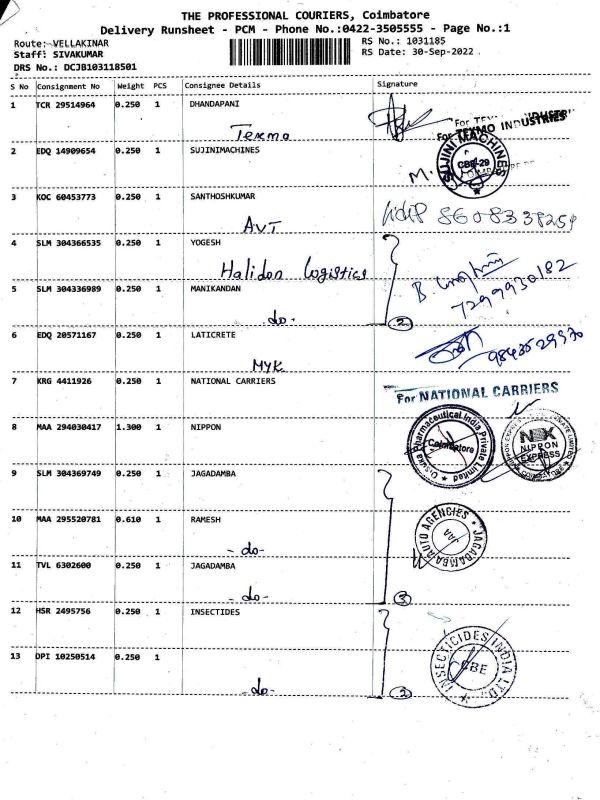 THE PROFESSIONAL COURIERS, Coimbatore
Delivery Runsheet - PCM - Phone No.:0422-3505555 - Page No.:1
Route: VELLAKINAR
Staff: SIVAKUMAR
DRS No.: DCJB103118501
RS No.: 1031185
RS Date: 30-Sep-2022
S No Consignment No Weight PCS Consignee Details Signature
1 TCR 29514964 0.250 1 DHANDAPANI
Texmo
For TEXMO INDUSTRIES
2 EDQ 14909654 0.250 1 SUJINIMACHINES
SUJINI MACHINES
CBE-29
M.
3 KOC 60453773 0.250 1 SANTHOSHKUMAR
AVT
8608338259
4 SLM 304366535 0.250 1 YOGESH
Halidon Logistics
5 SLM 304336989 0.250 1 MANIKANDAN
-do-
2
B.
7299930182
6 EDQ 20571167 0.250 1 LATICRETE
MYK
9843529930
7 KRG 4411926 0.250 1 NATIONAL CARRIERS
For NATIONAL CARRIERS
8 MAA 294030417 1.300 1 NIPPON
Otsuka Pharmaceutical India Private Limited
Coimbatore
NEX
NIPPON
EXPRESS
9 SLM 304369749 0.250 1 JAGADAMBA
10 MAA 295520781 0.610 1 RAMESH
-do-
JAGADAMBA AUTO AGENCIES
11 TVL 6302600 0.250 1 JAGADAMBA
-do-
3
12 HSR 2495756 0.250 1 INSECTIDES
13 DPI 10250514 0.250 1
-do-
2
INSECTICIDES INDIA LTD.
CBE